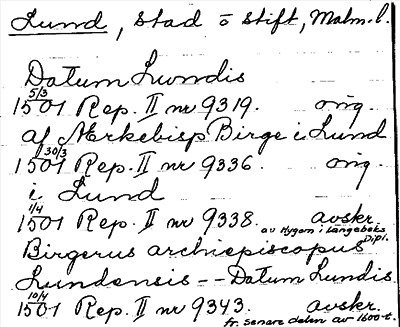 Lund, stad o stift, Malm. l.
Datum Lwndis
1501 5/3 Rep. II nr 9319. orig.
af Ærkebisp Birge i Lund
1501 30/3 Rep. II nr 9336. orig.
i Lund
1501 1/4 Rep. II nr 9338. avskr.
av Hygom i Langebeks Dipl.
Birgerus archiepiscopus
Lundensis -- Datum Lundis
1501 10/4 Rep. II nr 9343. avskr.
fr. senare delen av 1600-t.